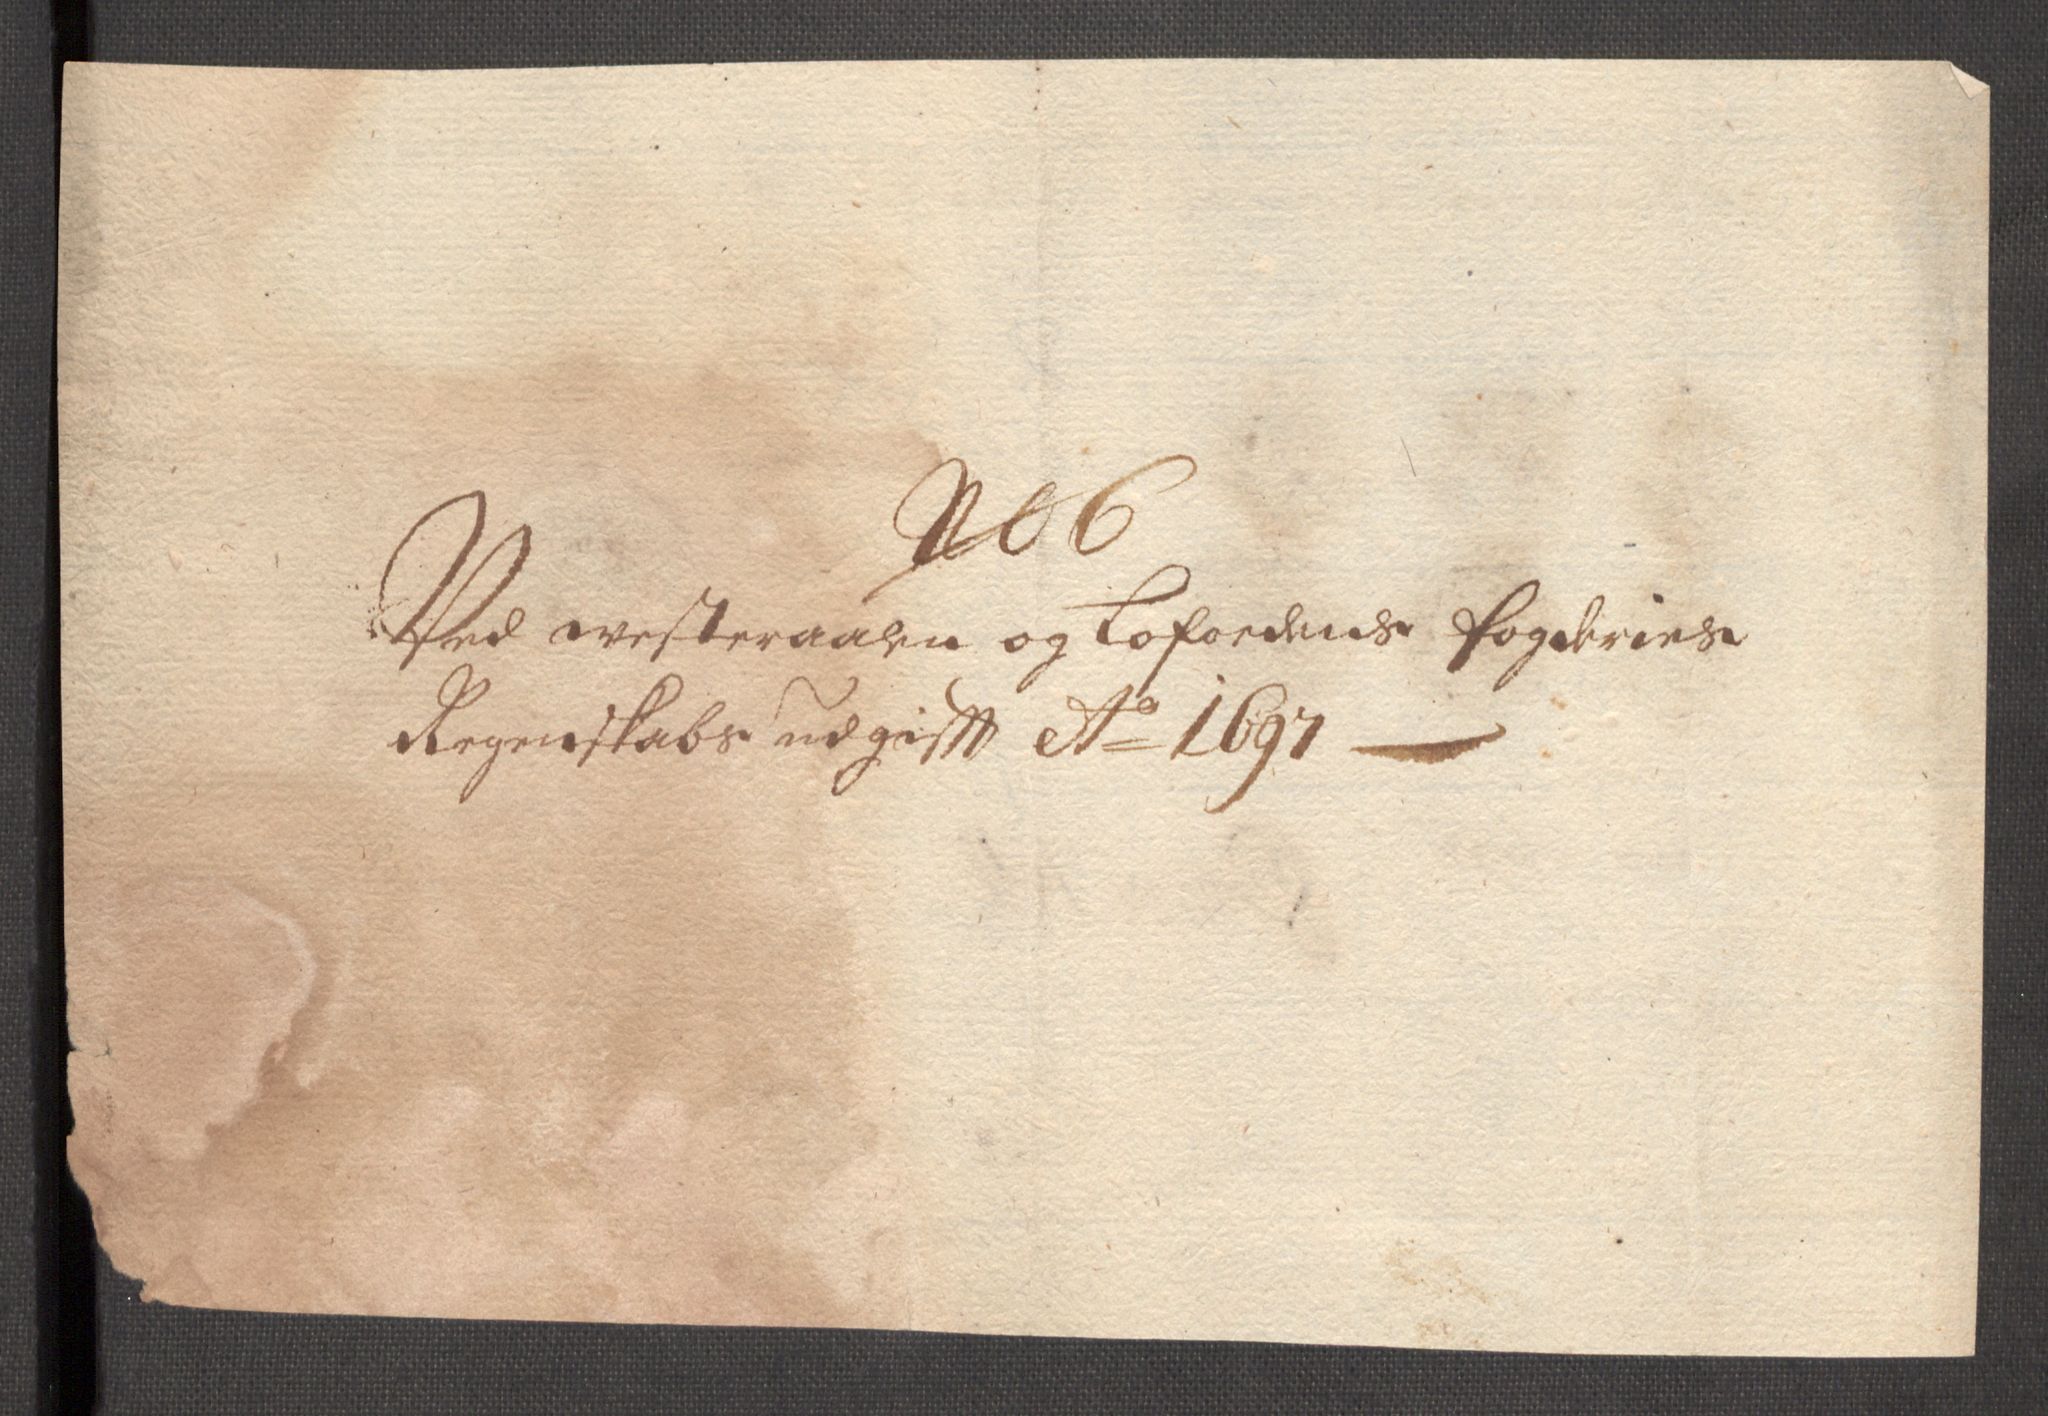 No 6
Ved westeraalen og Lofoedens fogderies
Regenskabs udgifft Ao 1697